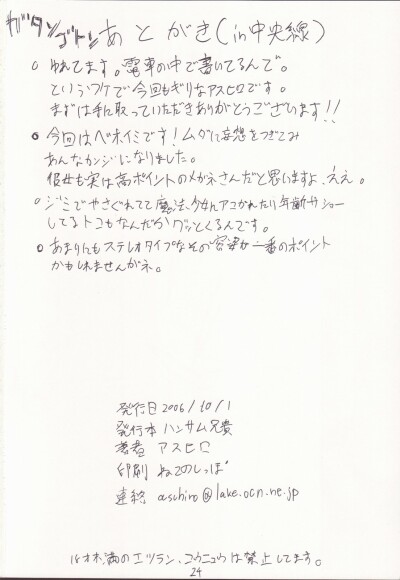 ガタンゴトンあとがき(in中央線)
○ ゆれてます。電車の中で書いてるんで。
というワケで今回もギリなアスヒロです。
まずは手に取っていただきありがとうございます!!
○ 今回はベホイミです!ムダに妄想をつぎこみ
あんなカンジになりました。
彼女も実は高ポイントのメガネさんだと思いますよ、ええ。
○ ジミでやさぐれてて魔法少女にアコがれたり年齢サショー
してるトコもなんだかグッとくるんです。
○ あまりにもステレオタイプなその容姿が一番のポイント
かもしれませんがネ。
発行日 2006/10/1
発行本 ハンサム兄貴
著者 アスヒロ
印刷 ねこのしっぽ
連絡 aschiro@lake.ocn.ne.jp
18才未満のエツラン、コウニュウは禁止してます。
24